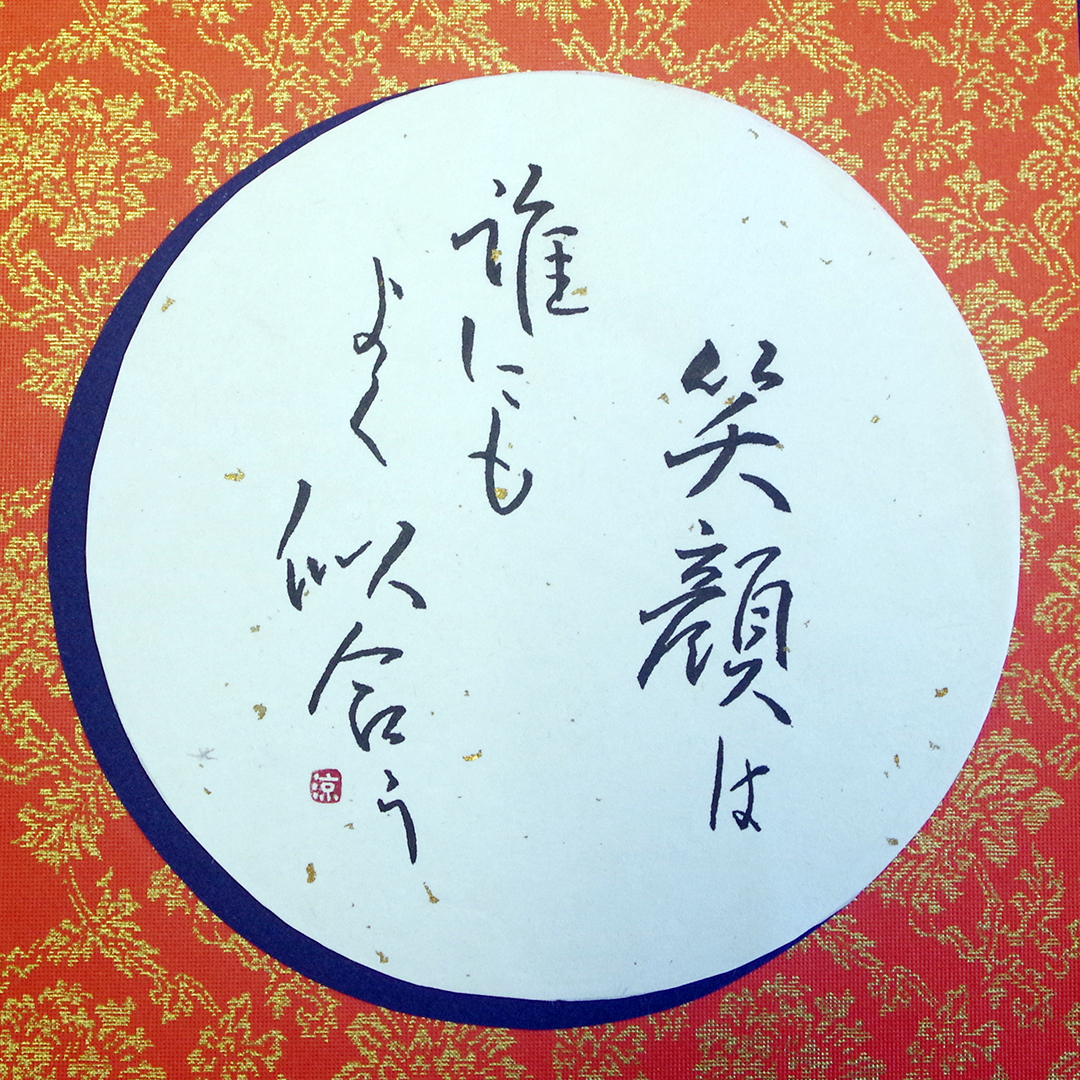 笑顔は
誰にも
よく似合う
涼